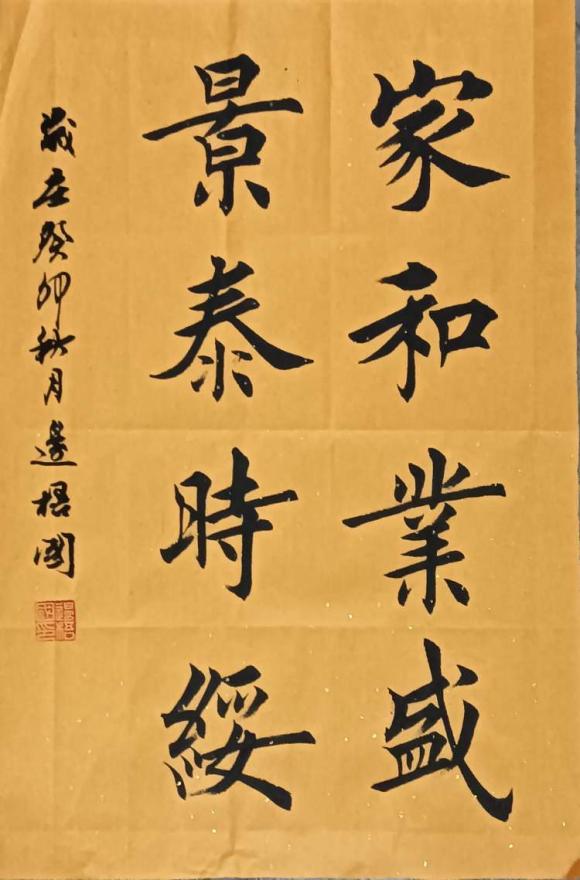 家和業盛
景泰時綏
歲在癸卯秋月邊楷國